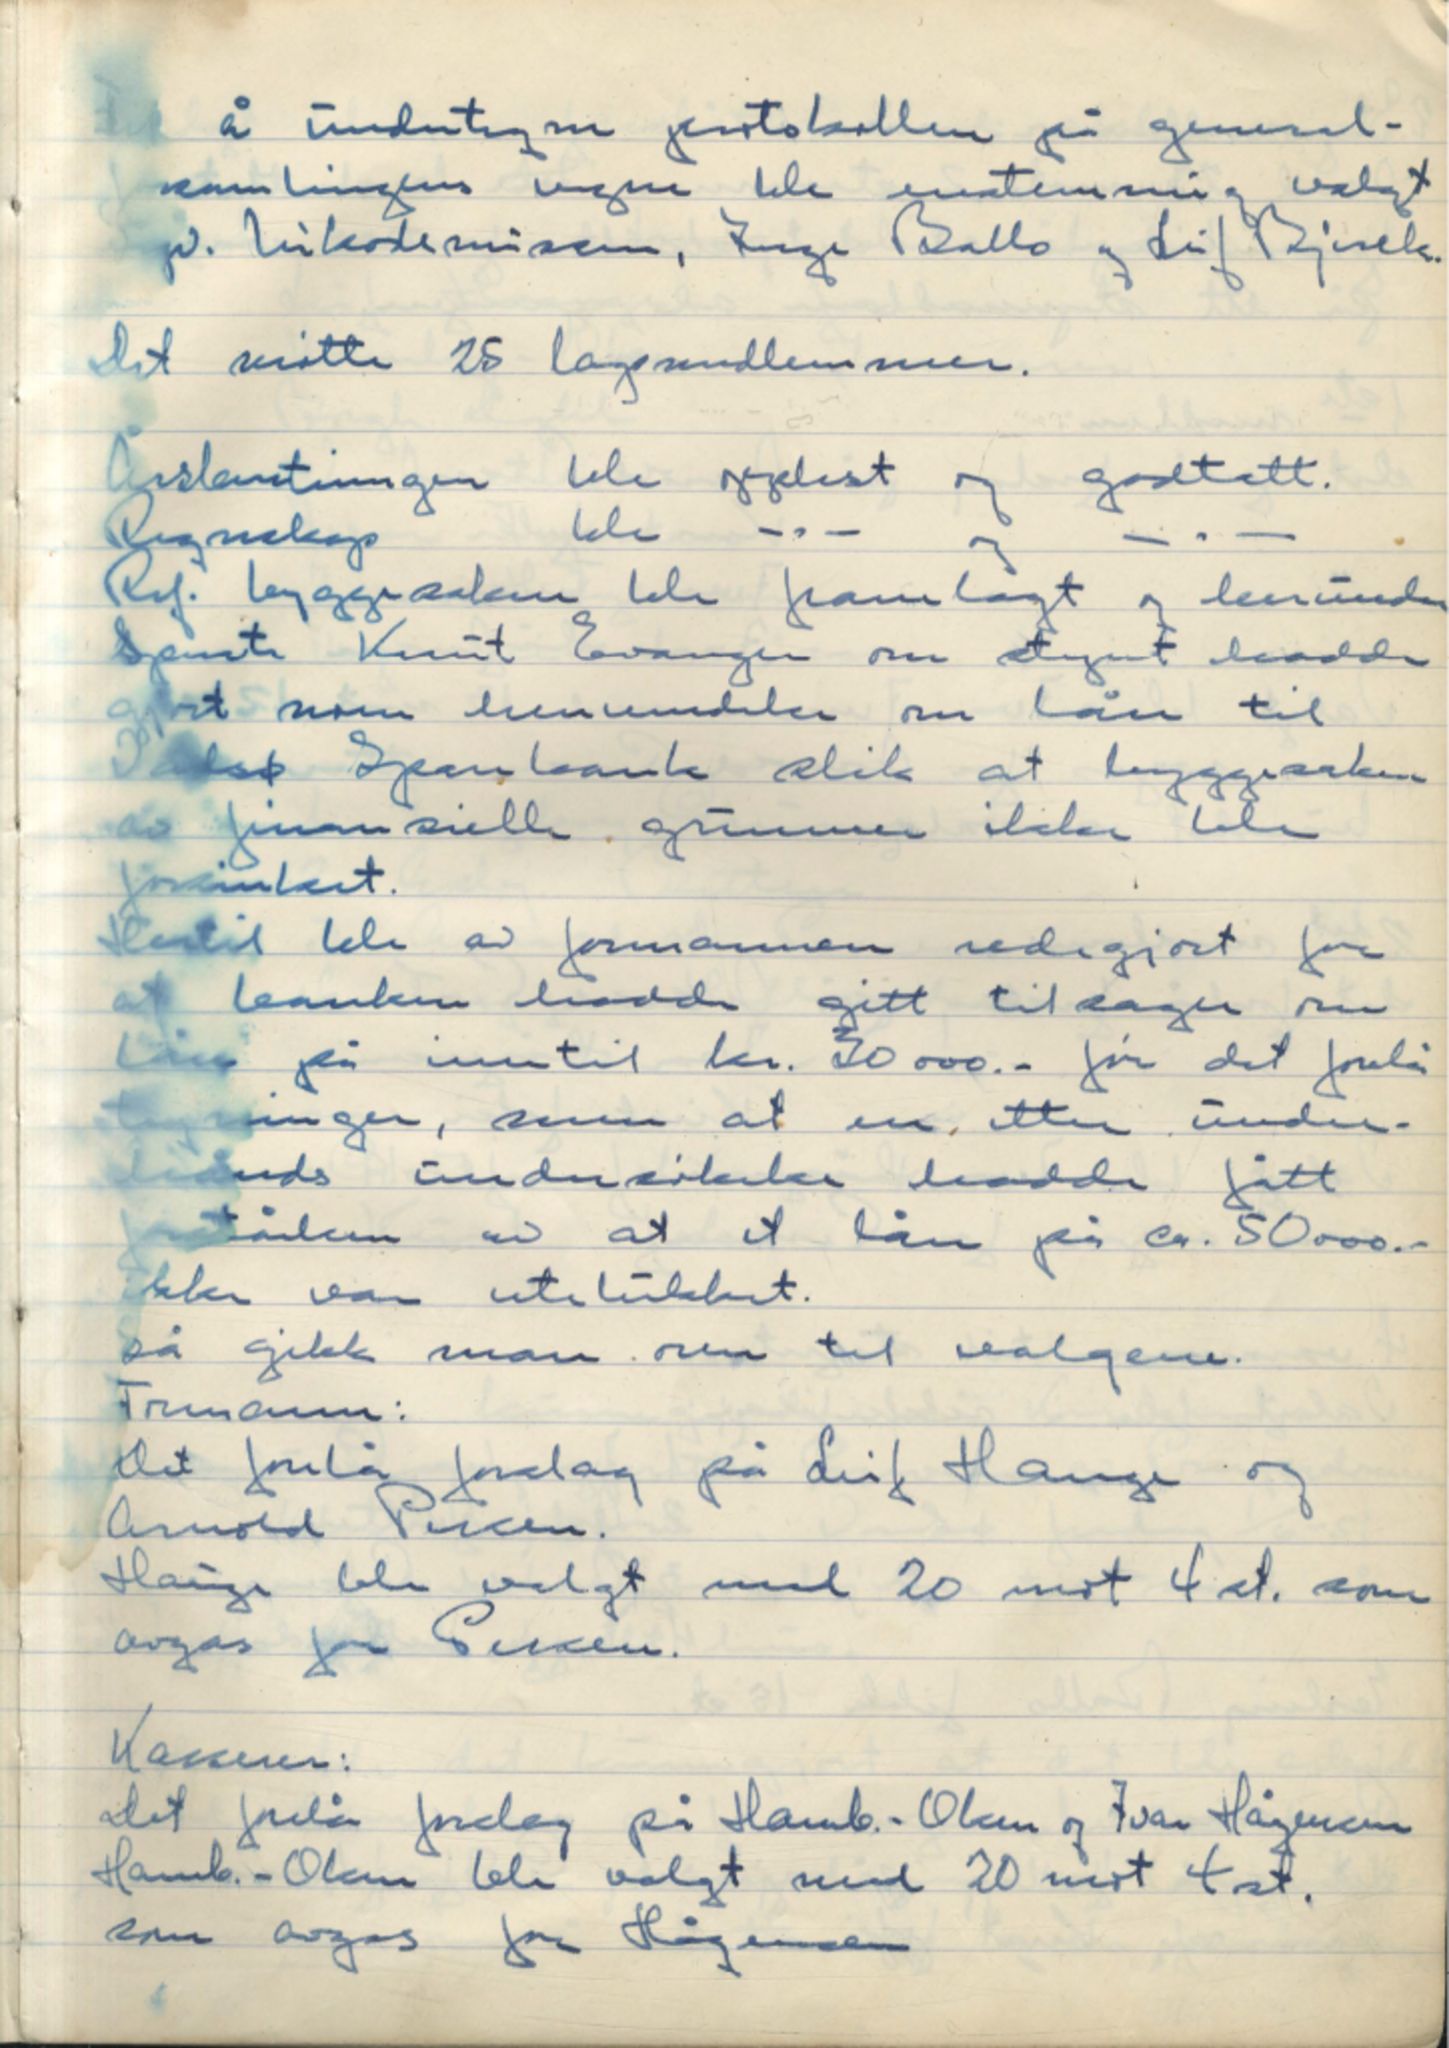 å undertegne protokollen på general-
samlingens vegne ble enstemmig valgt
Nikodemussen, Inge Ballo og Leif Bjørk.
Det møtte 25 lagsmedlemmer.
Årsberetningen ble opplest og godtatt.
Regnskap ble -"- og -"-
Ref. byggesaken ble framlagt og herunder
spurte Knut Evanger om styret hadde
gjort noen henvendelse om lån til
Sparebank slik at byggesaken
av finansielle grunner ikke ble
forsinket.
Hertil ble av formannen redegjort for
at banken hadde gitt tilsagn om
lån på inntil kr. 30 000.- før det forelå
tegninger, men at en etter under-
hånds undersøkelse hadde fått
forståelsen av at et lån på ca. 50 000.-
ikke var utelukket.
Så gikk man over til valgene.
Formann:
Det forelå forslag på Leif Hauge og
Arnold Persen.
Hauge ble valgt med 20 mot 4 st. som
avgas for Persen.
Kasserer:
Det forelå forslag på Hamb.-Olsen og Ivar Hågensen
Hamb.-Olsen ble valgt med 20 mot 4 st.
som avgas for Hågensen